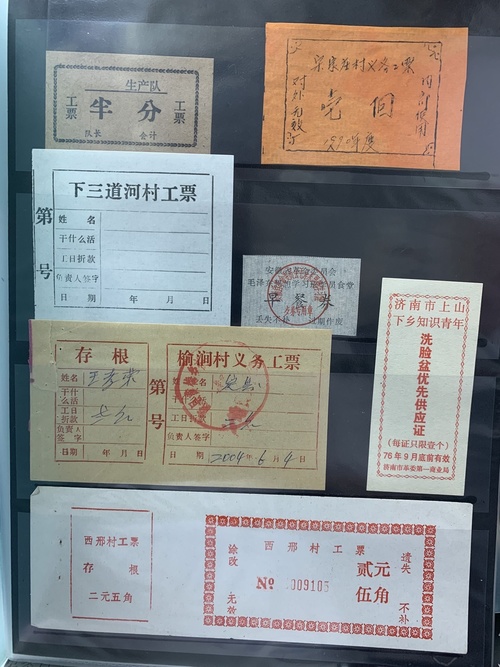 生产队
工票 半分 工票
队长 会计
宋家庄村义务工票
对外无效
壹個
内部使用
下三道河村工票
第 号
姓名
干什么活
工日折款
负责人签字
日期 年 月 日
毛泽东思想学习 食堂
早餐券
丢失不补 过期作废
济南市上山
下乡知识青年
洗脸盆优先供应证
(每证只限壹个)
76年9月底前有效
济南市革委第一商业局
存根
姓名
干什么活
工日折款
负责人签字
日期 年 月 日
第 号
榆涧村义务工票
姓名
干什么活
工日折款
负责人签字
日期 2004年6月4日
西邢村工票
存根
二元五角
西邢村工票
涂改 无效
No 009105
贰元
伍角
遗失 不补